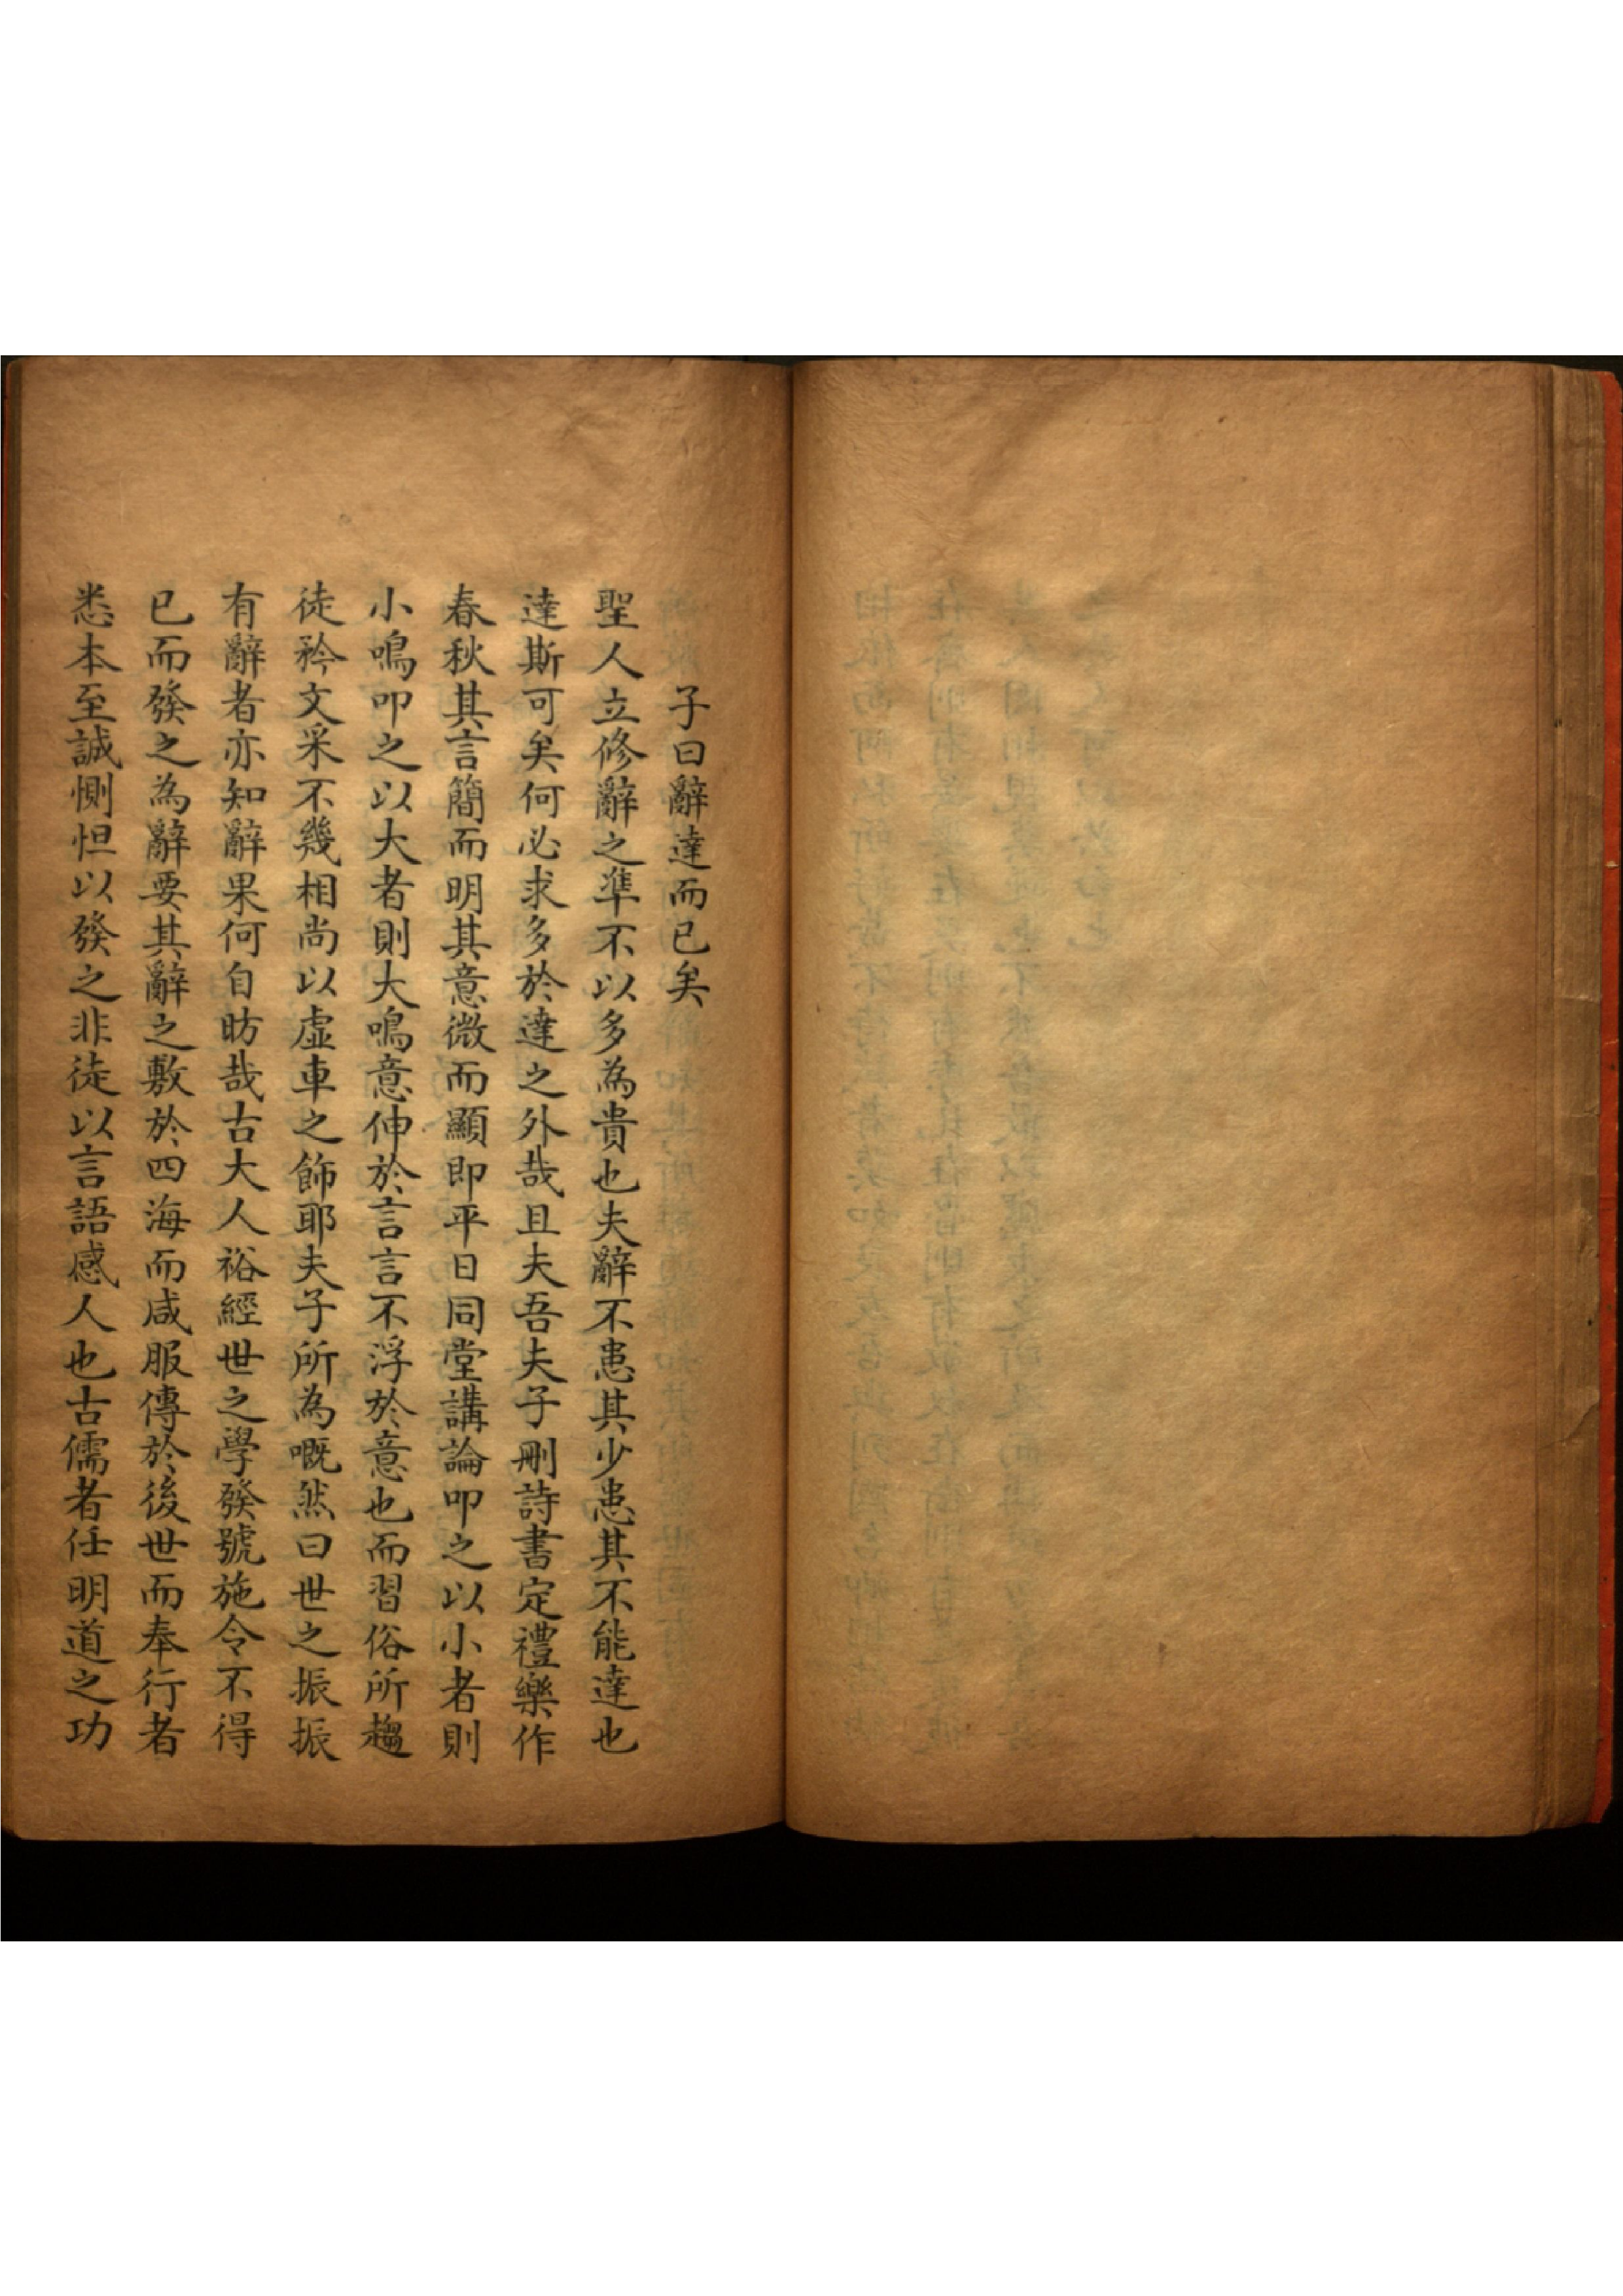 子曰辭達而已矣
聖人立修辭之準不以多為貴也夫辭不患其少患其不能達也
達斯可矣何必求多於達之外哉且夫吾夫子刪詩書定禮樂作
春秋其言簡而明其意微而顯即平日同堂講論叩之以小者則
小鳴叩之以大者則大鳴意伸於言言不浮於意也而習俗所趨
徒矜文采不幾相尚以虛車之飾耶夫子所為嘅然曰世之振振
有辭者亦知辭果何自昉哉古大人裕經世之學發號施令不得
已而發之為辭要其辭之敷於四海而咸服傳於後世而奉行者
悉本至誠惻怛以發之非徒以言語感人也古儒者任明道之功